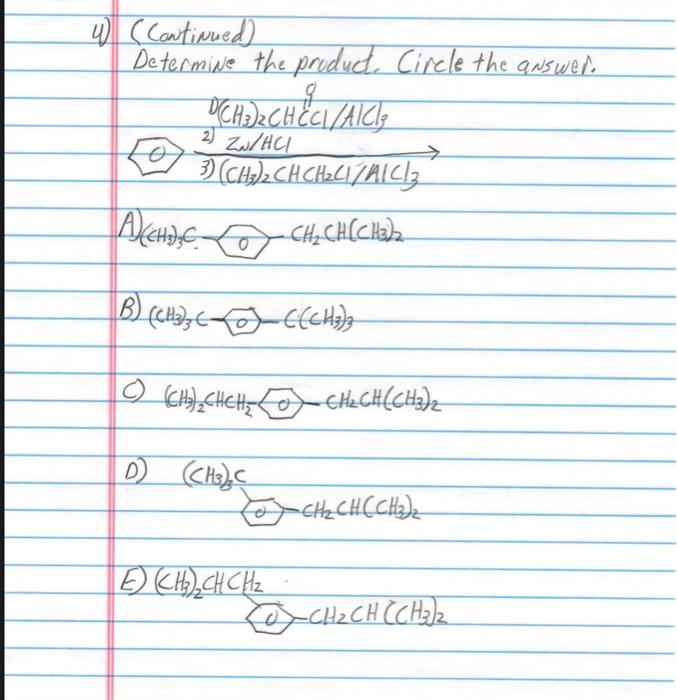 4) (Continued)
Determine the product. Circle the answer.
O
1) (CH3)2CHCCl/AlCl3
2) Zn/HCl
3) (CH3)2CHCH2Cl/AlCl3
A) (CH3)3C CH2CH(CH3)2
B) (CH3)3C C(CH3)3
C) (CH3)2CHCH2 CH2CH(CH3)2
D) (CH3)3C
CH2CH(CH3)2
E) (CH3)2CHCH2
CH2CH(CH3)2